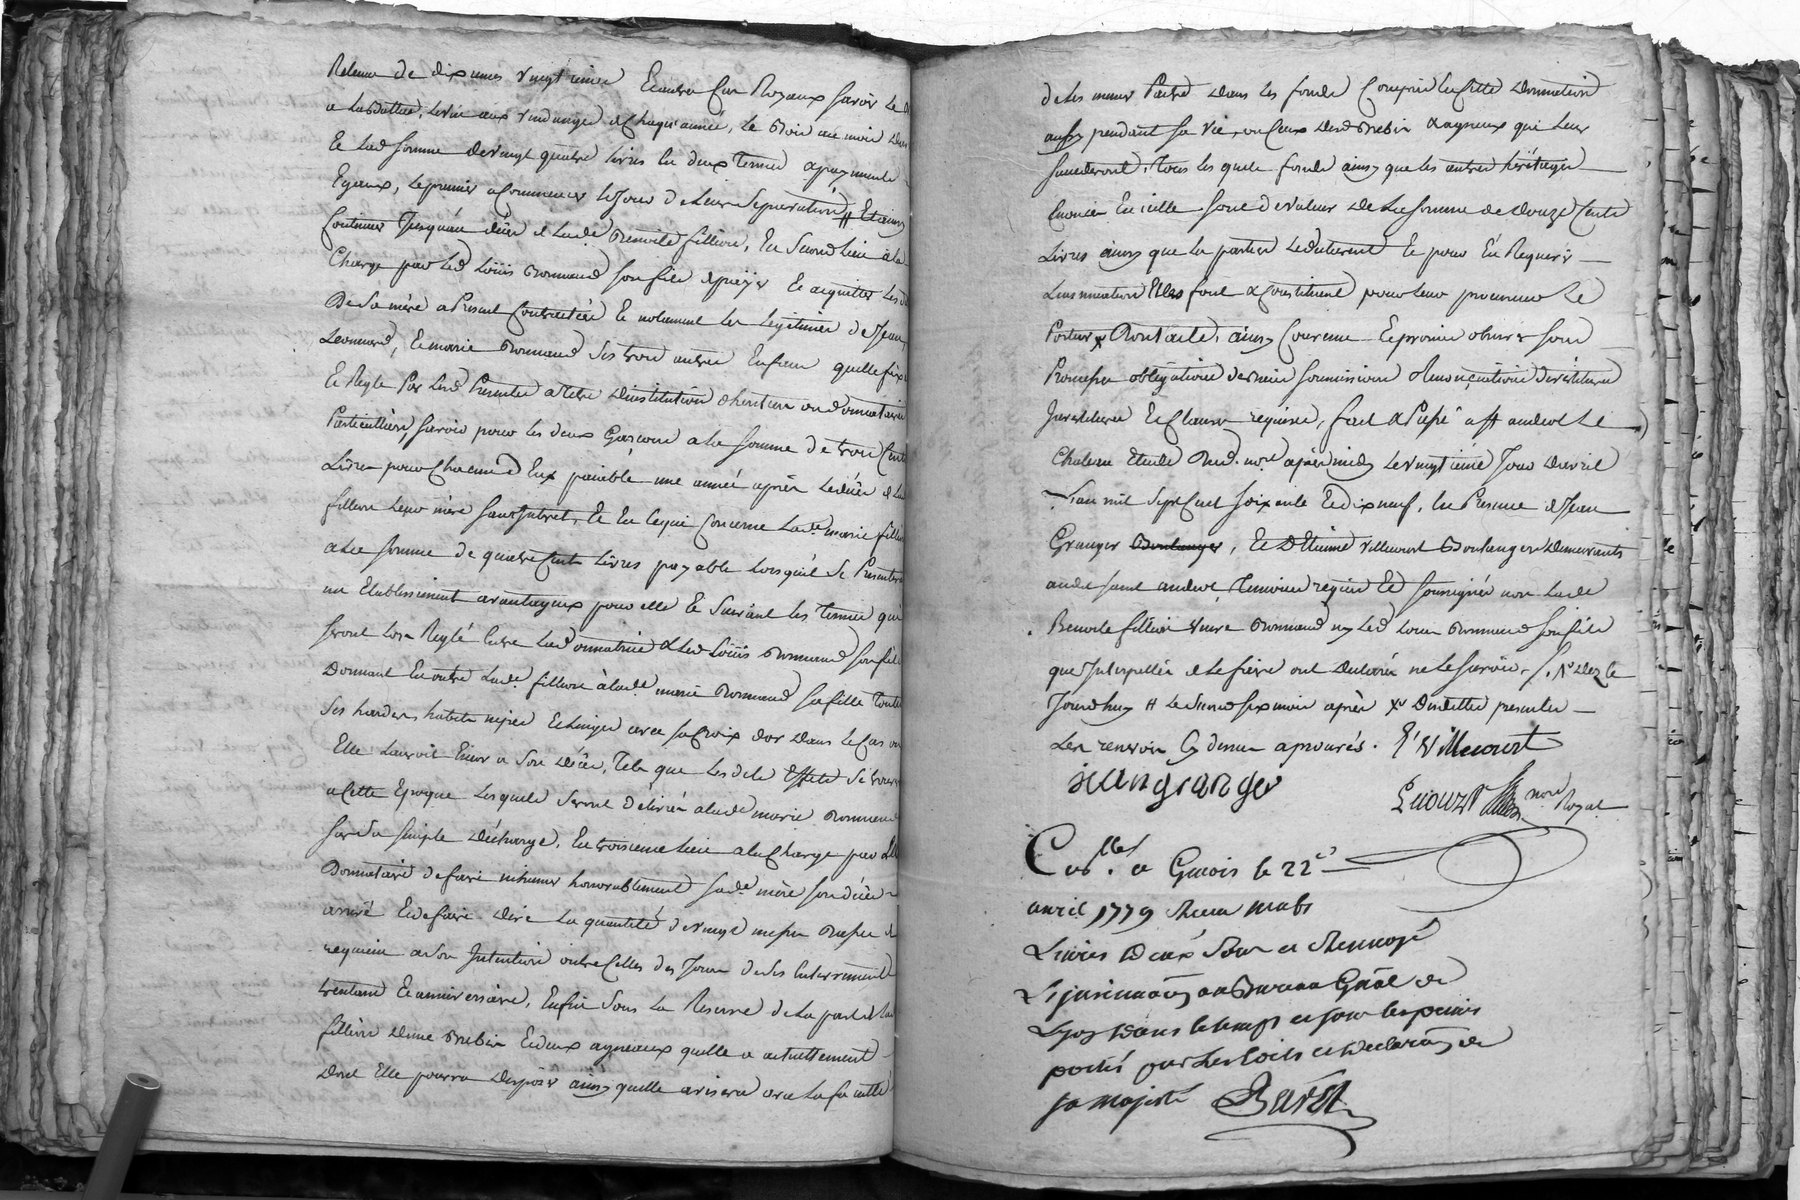 Retenue de dixiemes vingtieme Et autre cas Royaux savoir le
a la Battue, le vin aux vendanges de chaque année, le Bois au mois
Et lad somme de vingt quatre livres en deux Termes et payements
Egaux, le premier a Commencer le Jour de leur Separation # Et ainsi
Continuer Jusqu'au décès de lade Benoite fillion, En second lieu à la
Charge par led Loüis Bonnand son fils de païer Et aquitter les
De sa mère a Present Contractées Et notament les Légitimes de Jean,
Leonnard, Et marie Bonnand ses trois autres Enfans quelle fixe
Et Regle Par lesd Presentes a titre d'institution d'heritiers ou donnataires
Particulliers, savoir pour les deux Garçons a la somme de trois Cents
Livres pour Chacun d'Eux païable une année après le décès de lade
fillion leur mère sans Interet, Et En ce qui Concerne lade marie
a la somme de quatre Cents Livres payable lorsqu'il se Presentera
un Etablissement avantageux pour elle Et suivant les Termes qui
seront lors Reglé Entre lad donnatrice & led Loüis Bonnand son fils
Donnant En outre lade fillion à lade marie Bonnand sa fille toutes
ses hardes, habits nipes Et linges avec sa Croix d'or dans le Cas ou
Elle l'auroit Encor a son décès, Tels que lesdits Effets se trouveront
a Cette Epoque lesquels seront délivrés a lade marie Bonnand
sur sa simple décharge, En troisieme lieu a la Charge par led
Donnataire de faire inhumer honorablement sade mère son décès
arrivé Et de faire dire la quantité de vingt messes Basses de
requiem a son Intention outre Celles des Jours de ses Enterrement
trentane Et anniversaire, Enfin sous la Reserve de la part de lade
fillion d'une Brebis Et deux agneaux quelle a actuellement
dont Elle pourra disposer ainsy quelle avisera avec la faculté
de les mener Paitre dans les fonds Compris En Cette donnation
aussy pendant sa vie, ou Ceux desd Brebis & agneaux qui leur
succederont, tous lesquels fonds ainsy que les autres héritages
Enoncés En icelle sont de valeur de la somme de douze Cents
Livres ainsy que les parties le déclarent Et pour En Requerir
L'insinuation Elles font & Constituent pour leur procureur le
Porteur x Dont acte, ainsy Convenu Et promis observer sous
Promesses obligations de biens soumissions Renonciations
Jurisdictions Et Clauses requises, fait & Passé a St andeol le
Chateau étude Dud. nore après midy le vingtieme Jour d'avril
L'an mil sept Cent soixante Et dix neuf, En Présence de Jean
Granger Boulanger, Et d'Etienne villecourt Boulanger demeurants
aud saint andeol Temoins requis Et soussignés non lade
Benoite fillion veuve Bonnand ny led Louis Bonnand son fils
que Interpellés de le faire ont déclarés ne le savoir,
Jourdhuy # le second six mois après x Desdittes presentes
Les renvois Cy dessus aprouvés. E' Villecourt
jeangranger
nore Royal
Contllé a Givois le 22e
avril 1779 Receu
Livres deux Sous et Renvoyé
L'jnsinuaõn au Bureau Gñal de
Lyon dans le temps et sous les peines
portés par les Edits et declaraõn de
sa majesté